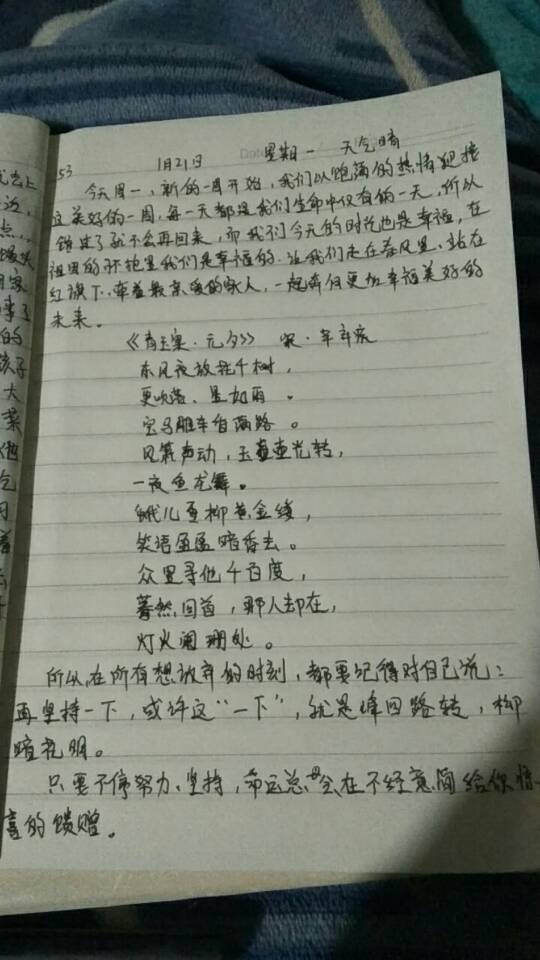 53 1月21日 星期一 天气晴
今天周一,新的一周开始,我们以饱满的热情迎接
这美好的一周,每一天都是我们生命中仅有的一天,所以
错过了就不会再回来,而我们今天的时光也是幸福,在
祖国的怀抱里我们是幸福的.让我们走在春风里.站在
红旗下.牵着最亲爱的家人,一起奔向更加幸福美好的
未来。
《青玉案·元夕》 宋·辛弃疾
东风夜放花千树,
更吹落、星如雨。
宝马雕车香满路。
凤箫声动,玉壶光转,
一夜鱼龙舞。
蛾儿雪柳黄金缕,
笑语盈盈暗香去。
众里寻他千百度,
蓦然回首,那人却在,
灯火阑珊处。
所以在所有想放弃的时刻,都要记得对自己说:
再坚持一下,或许这“一下”,就是峰回路转,柳
暗花明。
只要不停努力、坚持,命运总会在不经意间给你惊
喜的馈赠。